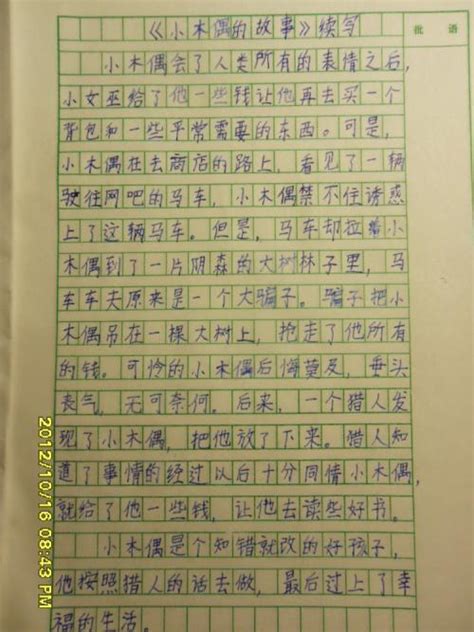 批 语
《小木偶的故事》续写
小木偶会了人类所有的表情之后，
小女巫给了他一些钱让他再去买一个
背包和一些平常需要的东西。可是，
小木偶在去商店的路上，看见了一辆
驶往网吧的马车，小木偶禁不住诱惑
上了这辆马车。但是，马车却拉着小
木偶到了一片阴森的大树林子里，马
车车夫原来是一个大骗子。骗子把小
木偶吊在一棵大树上，抢走了他所有
的钱。可怜的小木偶后悔莫及，垂头
丧气，无可奈何。后来，一个猎人发
现了小木偶，把他放了下来。猎人知
道了事情的经过以后十分同情小木偶，
就给了他一些钱，让他去读些好书。
小木偶是个知错就改的好孩子，
他按照猎人的话去做，最后过上了幸
福的生活。
2012/10/16 08:43 PM